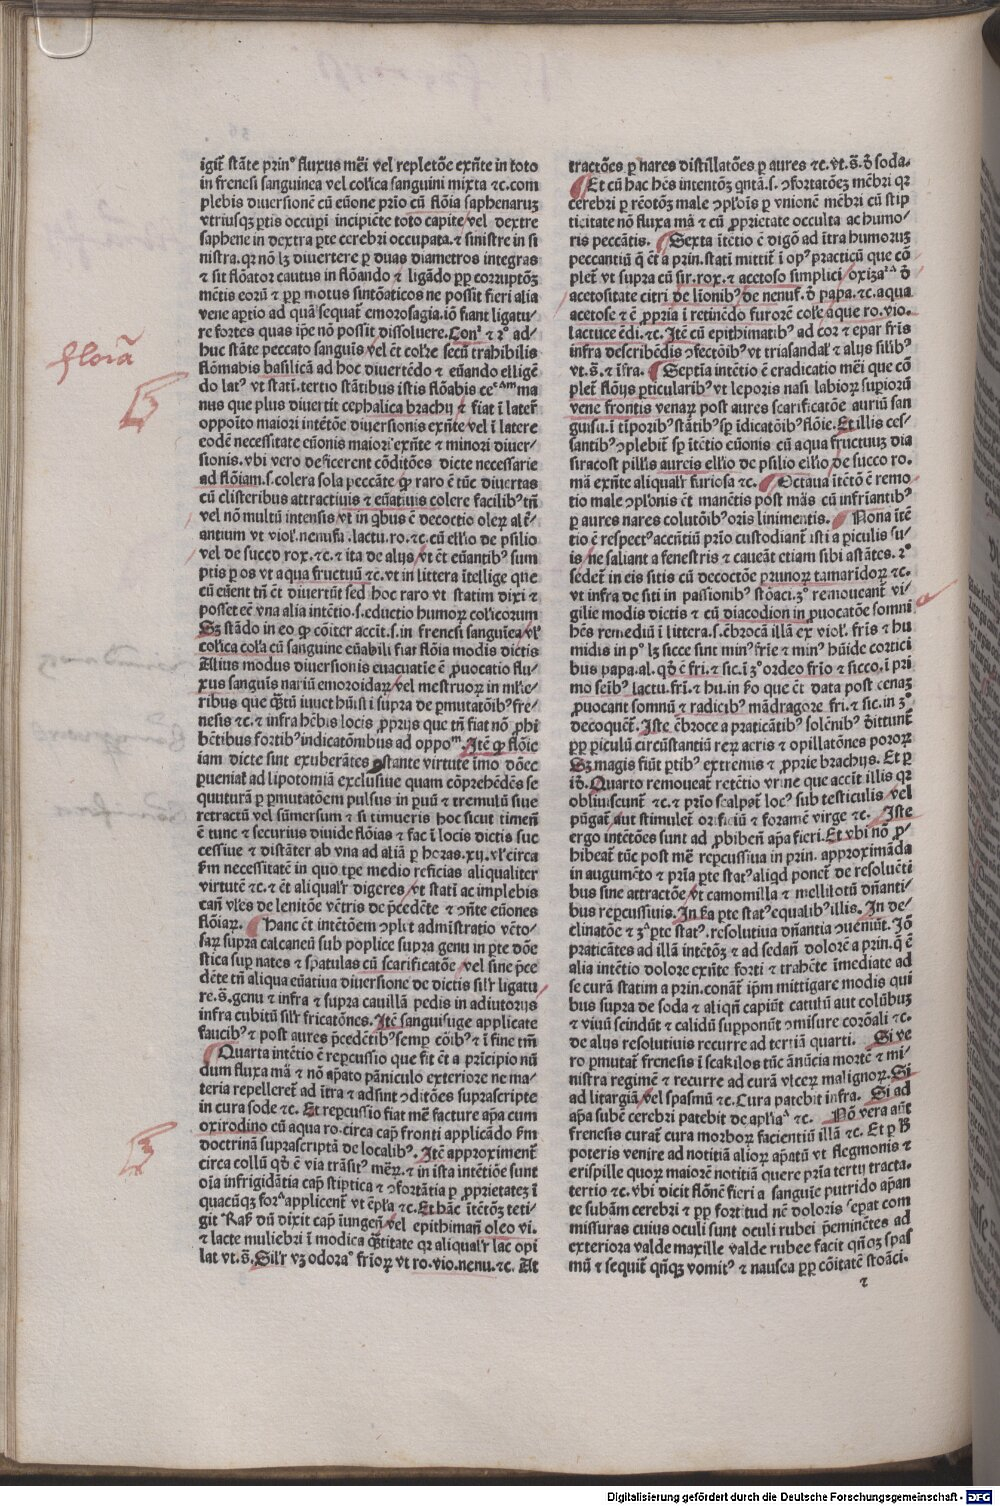 igit᷑ stãte prin° fluxus mẽi vel repletõe exñte in toto
in frenesi sanguinea vel col'ica sanguini mixta ⁊c. com
plebis diuersionẽ cũ euõne prio cũ flõia saphenaruʒ
vtriusqʒ ptis occupi incipiẽte toto capite vel dextre
saphene in dextra pte cerebri occupata. ⁊ sinistre in si
nistra. qr nõ lʒ diuertere p duas diametros integras
⁊ sit flõator cautus in flõando ⁊ ligãdo pp corruptõʒ
mẽtis eorũ ⁊ pp motus sintõaticos ne possit fieri alia
vene aptio ad quã sequat᷑ emorosagia. iõ fiant ligatu/
re fortes quas ipe nõ possit dissoluere. Con¹ ⁊ r° ad/
huc stãte peccato sanguis vel ẽt col're secũ trahibilis
flõmabis basilicã ad hoc diuertẽdo ⁊ euãndo elligẽ
do lat᷒ vt stati. tertio stãtibus istis flõabis ce ma
nus que plus diuertit cephalica brachij ⁊ fiat i later᷑
oppoito maiori intẽtõe diuersionis exñte vel i latere
eodẽ necessitate euõnis maiori exñte ⁊ minori diuer/
sionis. vbi vero deficerent cõditões dicte necessarie
ad flõiam. s. colera sola peccãte qꝫ raro ẽ tũc diuertas
cũ clisteribus attractiuis ⁊ euatiuis colere facilib᷒ tñ
vel nõ multũ intensis vt in qbus ẽ decoctio oleꝝ alt᷑/
antium vt viol'. nenufa. lactu. ro. ⁊c. cũ ellio de psilio
vel de succo rox. ⁊c. ⁊ ita de alijs vt ẽt euantib᷒ sum
ptis p os vt aqua fructuũ ⁊c. vt in littera itellige que
cũ euent tñ ẽt diuertũt sed hoc raro vt statim dixi ⁊
posset eẽ vna alia intẽtio. s. eductio humoꝝ col'icorum
Sʒ stãdo in eo qꝫ cõiter accit. s. in frenesi sanguiea vl'
col'ica col'a cũ sanguine euãbili fiat flõia modis dictis
Alius modus diuersionis euacuatiẽ ẽ ꝓuocatio flu/
xus sanguis nariũ emoroidaꝝ vel mestruoꝝ in mlie/
ribus que qʒtũ iuuet hũisti i supra de pmutatõib᷒ fre/
nesis ⁊c. ⁊ infra hẽbis locis ꝓprijs que tñ fiat nõ phi
bẽtibus fortib᷒ indicatõnibus ad oppoᵐ. Itẽ qꝫ flõie
iam dicte sunt exuberãtes ↄstante virtute imo dõec
pueniat᷑ ad lipotomiã exclusiue quam cõprehẽdẽs se
quuturã p pmutatõem pulsus in puũ ⁊ tremulũ siue
retractũ vel sũmersum ⁊ si timueris hoc sicut timeñ
ẽ tunc ⁊ securius diuide flõias ⁊ fac i locis dictis suc
cessiue ⁊ distãter ab vna ad aliã p horas. xij. vl' circa
fm necessitatẽ in quo tpe medio reficias aliqualiter
virtutẽ ⁊c. ⁊ ẽt aliqual'r digeres vt stati ac implebis
cañ vl'es de lenitõe vẽtris de pcedẽte ⁊ ↄñte euõnes
flõiaꝝ. Hanc ẽt intẽtõem ↄplet admistratio vẽto/
saꝝ supra calcaneũ sub poplice supra genu in pte dõe
stica sup nates ⁊ spatulas cũ scarificatõe vel sine pce
dẽte tñ aliqua euatiua diuersione de dictis sil'r ligatu
re. s̃. genu ⁊ infra ⁊ supra cauillã pedis in adiutorijs
infra cubitũ sil'r fricatõnes. Itẽ sanguisuge applicate
faucib᷒ ⁊ post aures pcedẽtib᷒ semp cõib᷒ ⁊ i fine tm̃
Quarta intẽtio ẽ repcussio que fit ẽt a prĩcipio nũ
dum fluxa mã ⁊ nõ apato pãniculo exteriore ne ma/
teria repelleret᷑ ad itra ⁊ adsint ↄditões suprascripte
in cura sode ⁊c. Et repcussio fiat mẽ facture apa cum
oxirodino cũ aqua ro. circa cap fronti applicãdo fm
doctrinã suprascriptã de localib᷒. Itẽ approximent᷑
circa collũ qb᷒ ẽ via trãsit᷒ mẽꝝ. ⁊ in ista intẽtiõe sunt
oia infrigidãtia cap stiptica ⁊ ↄfortãtia p proprietateʒ i
quacũqʒ forᵃ applicent᷑ vt ẽpla ⁊c. Et hãc itẽtõʒ teti/
git Raſ᷑ dũ dixit cap iungeñ vel epithimañ oleo vi.
⁊ lacte muliebri i modica qʒtitate qr aliqual'r lac opi
lat vt. s̃. Sil'r vʒ odora᷒ frioꝝ vt ro. vio. nenu. ⁊c. At
tractões p nares distillatões p aures ⁊c. vt. s̃. d soda.
Et cũ hac hẽs intentõʒ qntã. s. ↄfortatõeʒ mẽbri qr
cerebri p reõtõʒ male ↄploĩs p vnionẽ mẽbri cũ stip
ticitate nõ fluxa mã ⁊ cũ ꝓprietate occulta ac humo/
ris peccãtis. Sexta itẽtio ẽ digõ ad itra humoruʒ
peccantiũ q ẽt a prin. stati mittit᷑ i op᷒ practicũ que cõ
plet᷑ vt supra cũ sir. rox. ⁊ acetoso simplici oxiza᷒ d
acetositate citri de liõnib᷒ de nenuf. d papa. ⁊c. aqua
acetose ⁊ ẽ ꝓpria i retinẽdo furorẽ cole aque ro. vio.
lactuce ẽdi. ⁊c. Itẽ cũ epithimatib᷒ ad cor ⁊ epar fris
infra describẽdis ↄfectõib᷒ vt triasandal' ⁊ alijs silib᷒
vt. s̃. ⁊ ifra. Septia intẽtio ẽ eradicatio mẽi que cõ
plet᷑ flõijs pticularib᷒ vt leporis nasi labioꝝ supioꝝ
vene frontis venaꝝ post aures scarificatõe auriũ san
guisu. i tiporib᷒ stãtib᷒ sp idicatõib᷒ flõie. Et illis ces/
santib᷒ ↄplebit᷑ sp itẽtio euõnis cũ aqua fructuuʒ dia
siracost pillis aureis ellio de psilio ellio de succo ro.
mã exñte aliqual'r furiosa ⁊c. Octaua itẽtõ ẽ remo
tio male ↄplonis ẽt manẽtis post mãs cũ infriantib᷒
p aures nares colutõib᷒ oris linimentis. Nona itẽ
tio ẽ respect᷒ accñtiũ prio custodiant᷑ isti a piculis su/
is ne saliant a fenestris ⁊ caueãt etiam sibi astãtes. 2°
sedet᷑ in eis sitis cũ decoctõe prunoꝝ tamaridoꝝ ⁊c.
vt infra de siti in passionib᷒ stõaci. 3° remoueant᷑ vi/
gilie modis dictis ⁊ cũ diacodion in ꝓuocatõe somni
hẽs remediũ i littera. s. ẽbrocã illã ex viol'. fris ⁊ hu
midis in p° lʒ sicce sunt min᷒ frie ⁊ min᷒ hũide cortici
bus papa. al. qb᷒ ẽ fri. ⁊ sic. i 3° ordeo frio ⁊ sicco. i pri
mo seib᷒ lactu. fri. ⁊ hu. in ſo que ẽt data post cenaʒ
ꝓuocant somnũ ⁊ radicib᷒ mãdragore fri. ⁊ sic. in 3°
decoquẽt᷑. Iste ẽbroce a praticãtib᷒ solẽnib᷒ dittunt᷑
pp piculũ circũstantiũ reꝝ acris ⁊ opillatõnes pororꝝ
Sʒ magis fiũt ptib᷒ extremis ⁊ ꝓprie brachijs. Et p
id. Quarto remoueat᷑ retẽtio vrine que accit illis qr
obliuiscunt᷑ ⁊c. ⁊ prio scalpat᷑ loc᷒ sub testiculis vel
pũgat᷑ aut stimulet᷑ orificiũ ⁊ foramẽ virge ⁊c. Iste
ergo intẽtões sunt ad ꝓhibeñ apa fieri. Et vbi nõ ꝓ/
hibeat᷑ tũc post mẽ repcussiua in prin. approximãda
in augumẽto ⁊ pria pte stat᷒ aliqd ponet᷑ de resoluẽti
bus sine attractõe vt camomilla ⁊ mellilotũ dñanti/
bus repcussiuis. In ſa pte stat᷒ equalib᷒ illis. In de/
clinatõe ⁊ 3ᵃ pte stat᷒. resolutiua dñantia ↄueniũt. Iõ
praticãtes ad illã intẽtõʒ ⁊ ad sedañ dolorẽ a prin. q ẽ
alia intẽtio dolore exñte forti ⁊ trahẽte imediate ad
se curã statim a prin. conãt᷑ ipm mittigare modis qui
bus supra de soda ⁊ aliqñ capiũt catulũ aut colũbuʒ
⁊ viuũ scindũt ⁊ calidũ supponũt ↄmisure corõali ⁊c.
de alijs resolutiuis recurre ad tertiũ quarti. Si ve
ro pmutat᷑ frenesis i scakilos tũc ãnũcia mortẽ ⁊ mi/
nistra regimẽ ⁊ recurre ad curã vlceꝝ malignoꝝ. Si
ad litargiã vel spasmũ ⁊c. Cura patebit infra. Si ad
apa subẽ cerebri patebit de aplia ⁊c. Nõ vera aũt
frenesis curat᷑ cura morboꝝ facientiũ illã ⁊c. Et p B
poteris venire ad notitiã alioꝝ apatũ vt flegmonis ⁊
erispille quoꝝ maiorẽ notitiã quere pria tertij tracta.
tertio ⁊c. vbi dicit flõnẽ fieri a sanguie putrido apan
te subãm cerebri ⁊ pp fortitud nẽ doloris sepat com
missuras cuius oculi sunt oculi rubei pẽminẽtes ad
exteriora valde maxille valde rubee facit qñoʒ spas
mũ ⁊ sequit᷑ qñqʒ vomit᷒ ⁊ nausea pp cõitatẽ stoãci.
⁊
florã
Digitalisierung gefördert durch die Deutsche Forschungsgemeinschaft - DFG